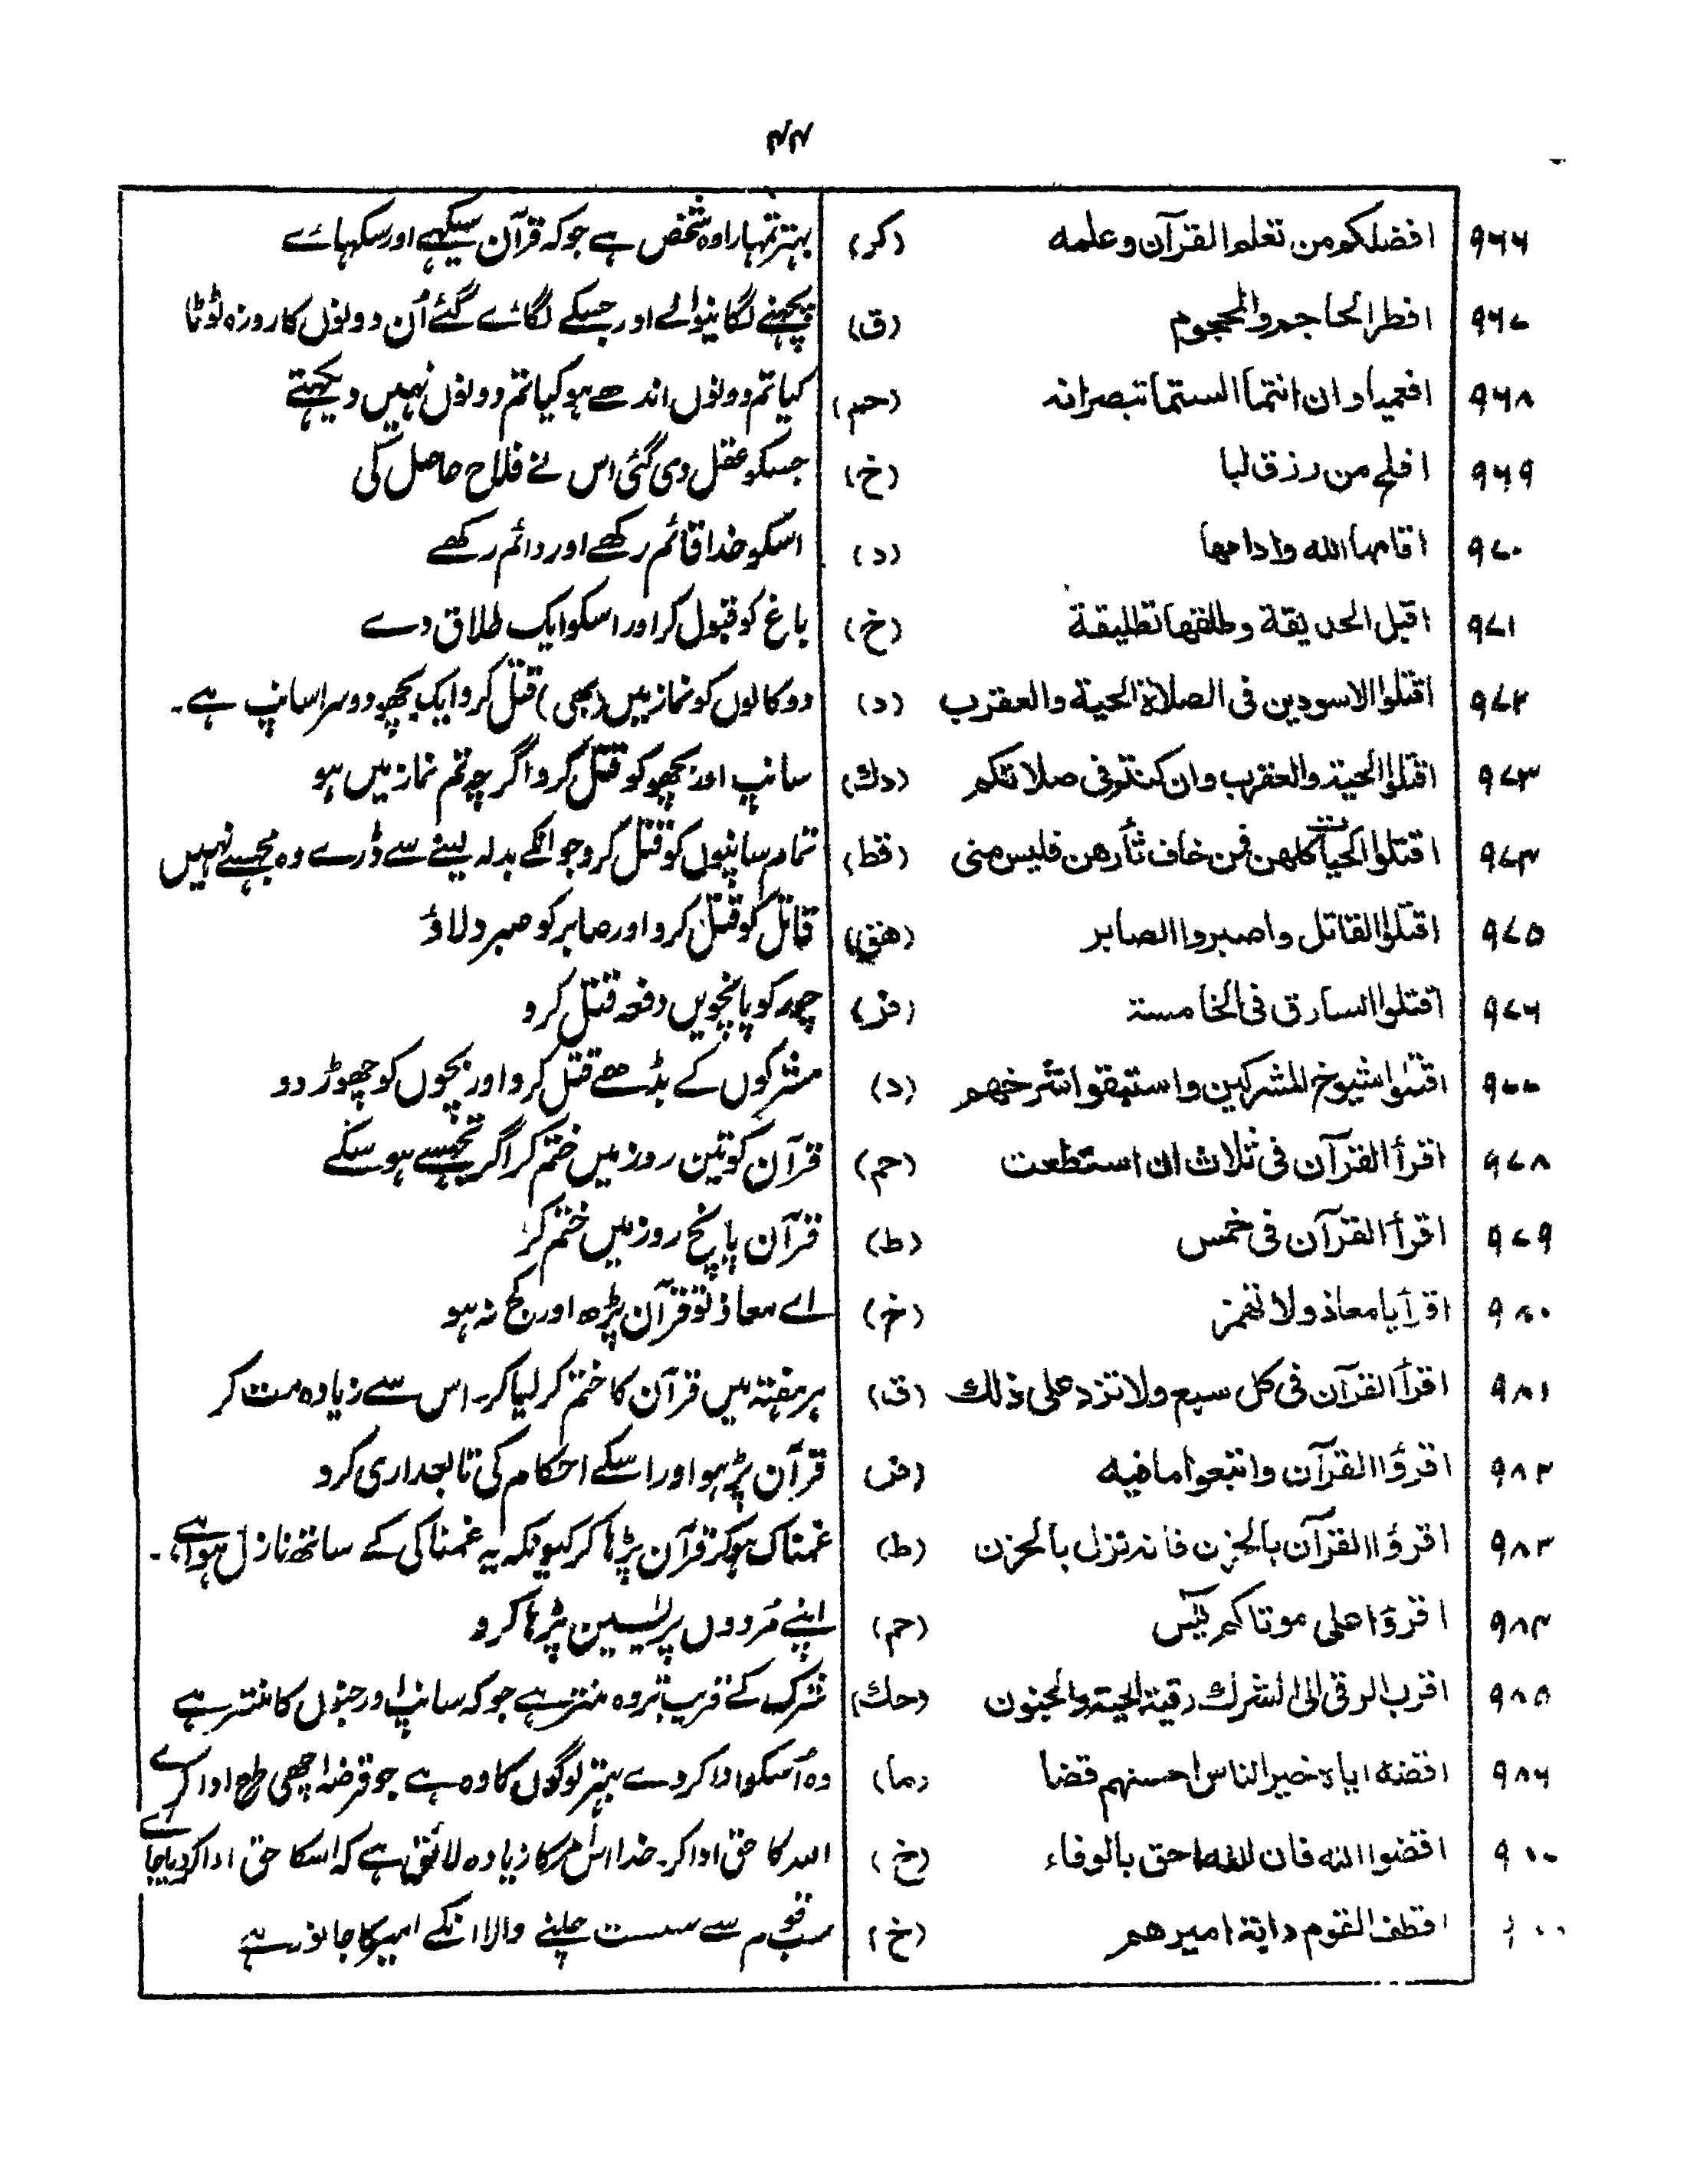 ۴۴
۹۶۶ افضلكم من تعلم القرآن وعلمه (كر) بہتر تمہارا وہ شخص ہے جو کہ قرآن سیکہے اور سکہائے
۹۶۷ افطر الحاجم والمحجوم (ق) پچھنے لگانیوالے اور جسکے لگائے گئے اُن دونوں کا روزہ ٹوٹا
۹۶۸ افعمیاوان انتما الستما تبصرانه (حم) کیا تم دونوں اندھے ہو کیا تم دونوں نہیں دیکہتے
۹۶۹ افلح من رزق لبا (خ) جسکو عقل دی گئی اس نے فلاح حاصل کی
۹۷۰ اقامها الله وادامها (د) اسکو خدا قائم رکھے اور دائم رکھے
۹۷۱ اقبل الحديقة وطلقها تطليقة (خ) باغ کو قبول کر اور اسکو ایک طلاق دے
۹۷۲ اقتلوا الاسودين فى الصلاة الحية والعقرب (د) دو کالوں کو نماز میں (بھی) قتل کرو ایک بچھو دوسرا سانپ ہے۔
۹۷۳ اقتلوا الحية والعقرب وان كنتم فى صلاتكم (دك) سانپ اور بچھو کو قتل کرو اگرچہ تم نماز میں ہو
۹۷۴ اقتلوا الحيات كلهن فمن خاف ثأرهن فليس منى (قط) تمام سانپوں کو قتل کرو جو انکے بدلہ لینے سے ڈرے وہ مجسے نہیں
۹۷۵ اقتلوا القاتل واصبروا الصابر (هق) قاتل کو قتل کرو اور صابر کو صبر دلاؤ
۹۷۶ اقتلوا السارق فى الخامسة (فر) چور کو پانچویں دفعہ قتل کرو
۹۷۷ اقتلوا شيوخ المشركين واستبقوا شرخهم (د) مشرکوں کے بڈھے قتل کرو اور بچوں کو چھوڑ دو
۹۷۸ اقرأ القرآن فى ثلاث ان استطعت (حم) قرآن کو تین روز میں ختم کر اگر تجہسے ہو سکے
۹۷۹ اقرأ القرآن فى خمس (ط) قرآن پانچ روز میں ختم کر
۹۸۰ اقرأ يا معاذ ولا (خ) اے معاذ تو قرآن پڑھ اور کج نہ ہو
۹۸۱ اقرأ القرآن فى كل سبع ولا تزد على ذلك (ق) ہر ہفتہ میں قرآن کا ختم کر لیا کر۔ اس سے زیادہ مت کر
۹۸۲ اقرؤا القرآن واتبعوا ما فيه (فر) قرآن پڑہو اور اسکے احکام کی تابعداری کرو
۹۸۳ اقرؤا القرآن بالحزن فانه نزل بالحزن (ط) غمناک ہو کر قرآن پڑہا کر کیونکہ یہ غمناکی کے ساتھ نازل ہوا ہے۔
۹۸۴ اقرؤا على موتاكم يٰس (حم) اپنے مُردوں پر یٰسین پڑہا کرو
۹۸۵ اقرب الرقى الى الشرك رقية الحية والجنون (حاك) شرک کے قریب تر وہ منتر ہے جو کہ سانپ اور جنوں کا منتر ہے
۹۸۶ اقضه اياه خير الناس احسنهم قضا (ما) وہ اُسکو ادا کر دے بہتر لوگوں کا وہ ہے جو قرضہ اچھی طرح ادا کرے
اقضوا الله فان الله احق بالوفاء (خ) اللہ کا حق ادا کر۔ خدا اس امر کا زیادہ لائق ہے کہ اسکا حق ادا کر دیا جائے
اقطف القوم دابة اميرهم (خ) سب قوم سے سست چلنے والا انکے امیر کا جانور ہے